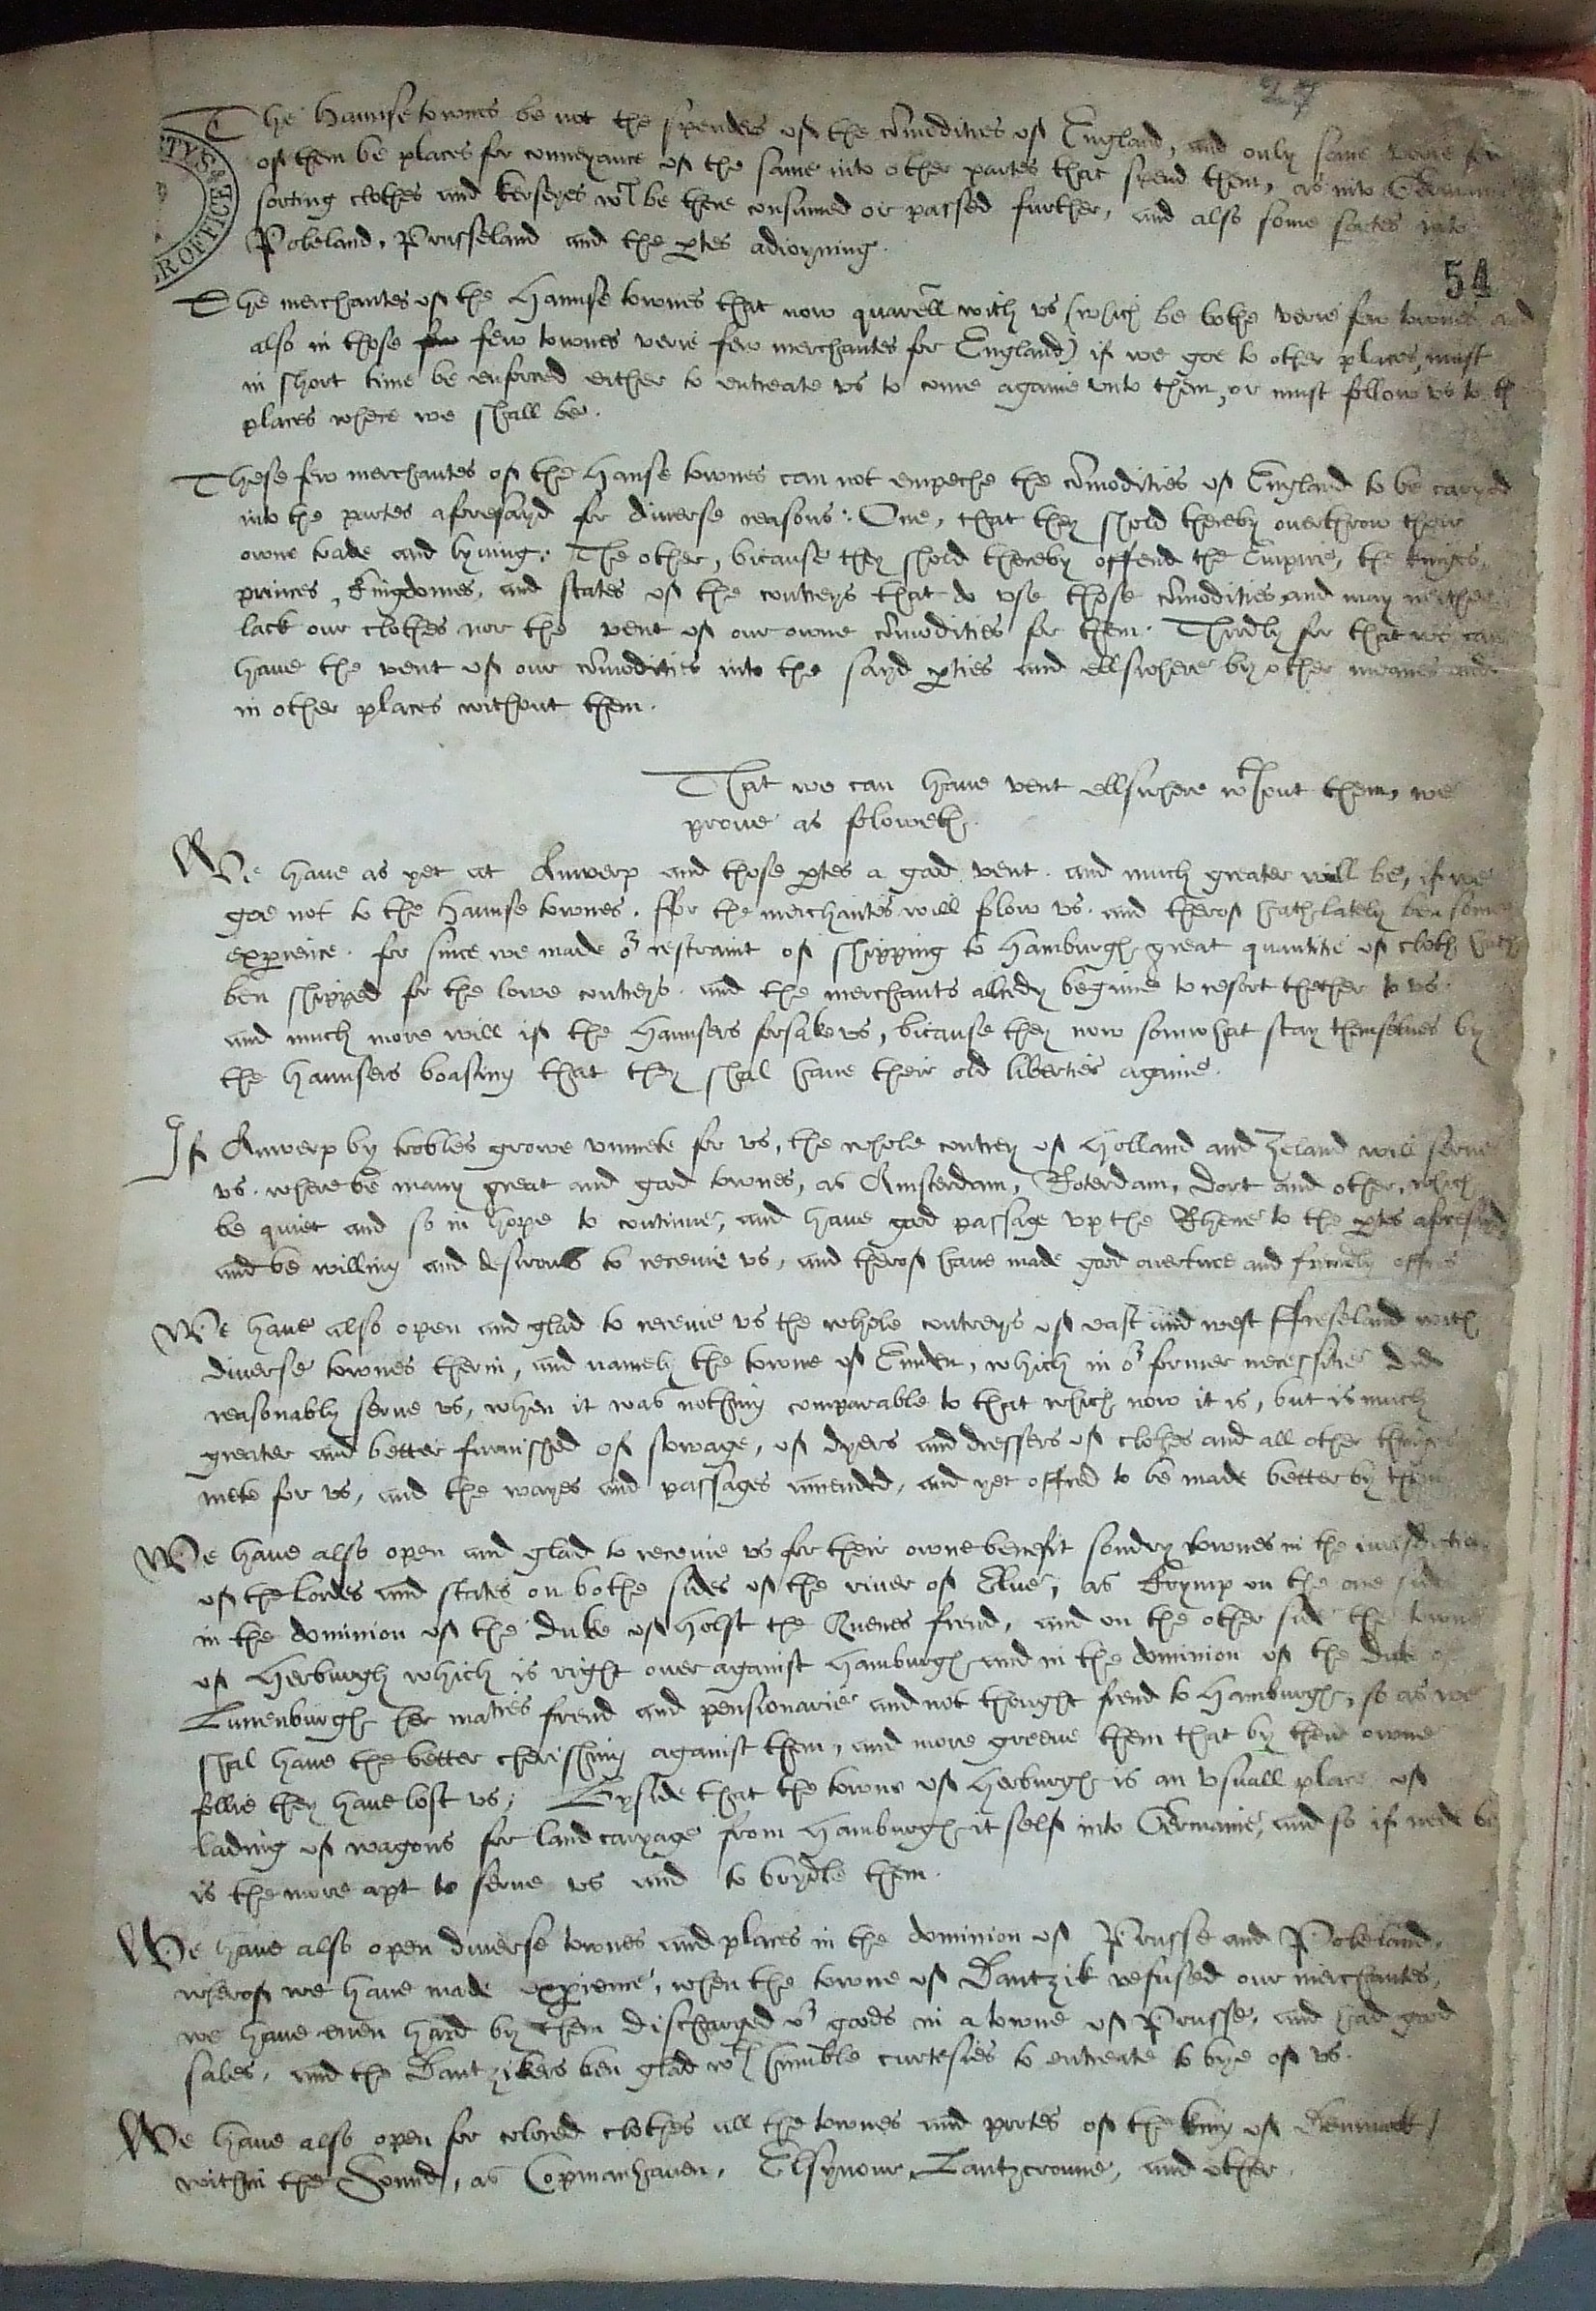 27
The Haunse townes be not the spenders of the cõmodities of England, and only some verie few
of them be places for conveyance of the same into other partes that spend them, as into Germanie
sorting clothes and kerseyes wch be there consumed or passed further, and also some sortes into
Poleland, Prusseland and the ptes adioyning.
54
The merchantes of the Haunse townes that now quarell with vs (which be bothe verie few townes and
also in those few townes verie few merchantes for England) if we goe to other places, must
in short time be enforced either to entreate vs to come againe vnto them, or must follow vs to th
places where we shall be.
These few merchantes of the Hanse townes can not empeche the cõmodities of England to be caryed
into the partes aforesayd for diuerse reasons: One, that they shold thereby ouerthrow their
owne trade and lyuing: The other, bicause they shold thereby offend the Empire, the kinges,
princes, kingdomes, and states of the contreys that do vse those cõmodities and may neither
lack our clothes nor the vent of our owne cõmodities for them. Thirdly for that we can
haue the vent of our cõmodities into the sayd pties and ellswhere by other meanes and
in other places without them.
That we can haue vent ellswhere wthout them, we
proue as foloweth.
We haue as yet at Anwerp and those ptes a good vent. and much greater will be, if we
goe not to the Haunse townes. ffor the merchantes will folow vs. and therof hath lately ben some
experience. for since we made or restraint of shipping to Hamburgh great quantitie of cloth hath
ben shipped for the lowe contreys. and the merchants alredy beginne to resort thether to vs.
and much more will if the Haunsers forsake vs, bicause they now somwhat stay themselues by
the Haunsers boasting that they shal haue their old liberties againe.
If Anwerp by trobles growe vnmete for vs, the whole contrey of Holland and Zeland will serue
vs. where be many great and good townes, as Amsterdam, Roterdam, Dort and other, which
be quiet and so in hope to continue, and haue good passage vp the Rhene to the ptes aforesayd
and be willing and desirous to receiue vs, and therof haue made good ouerture and frendly offers
We haue also open and glad to receiue vs the whole contreys of east and west ffreseland with
diuerse townes therin, and namely the towne of Emden, which in or former necessitie did
reasonably serue vs, when it was nothing comparable to that which now it is, but is much
greater and better furnished of stowage, of dyers and dressers of clothes and all other thinges
mete for vs, and the wayes and passages amended, and yet offred to be made better by them
We haue also open and glad to receiue vs for their owne benefit sondry townes in the iurisdiction
of the Lordes and states on bothe sides of the riuer of Elue, as Krymp on the one side
in the dominion of the Duke of Holst the Quenes frend, and on the other side the towne
of Herburgh which is right ouer against Hamburgh and in the dominion of the Duke of
Lunenburgh her maties frend and pensionarie and not thought frend to Hamburgh, so as we
shal haue the better cherishing against them, and more greeue them that by their owne
follie they haue lost vs: Byside that the towne of Herburgh is an vsuall place of
lading of wagons for land caryage from Hamburgh it self into Germanie, and so if nede be
is the more apt to serue vs and to brydle them.
We haue also open diuerse townes and places in the dominion of Prusse and Poleland.
wherof we haue made experience, when the towne of Dantzik refused our merchantes,
we haue euen hard by them discharged or goods in a towne of Prusse, and had good
sales, and the Dantzikers ben glad wth humble curtesies to entreate to bye of vs.
We haue also open for colored clothes all the townes and portes of the king of Denmark
within the Sound, as Copmanhauen, Elsynour, Lantzcroune, and other.